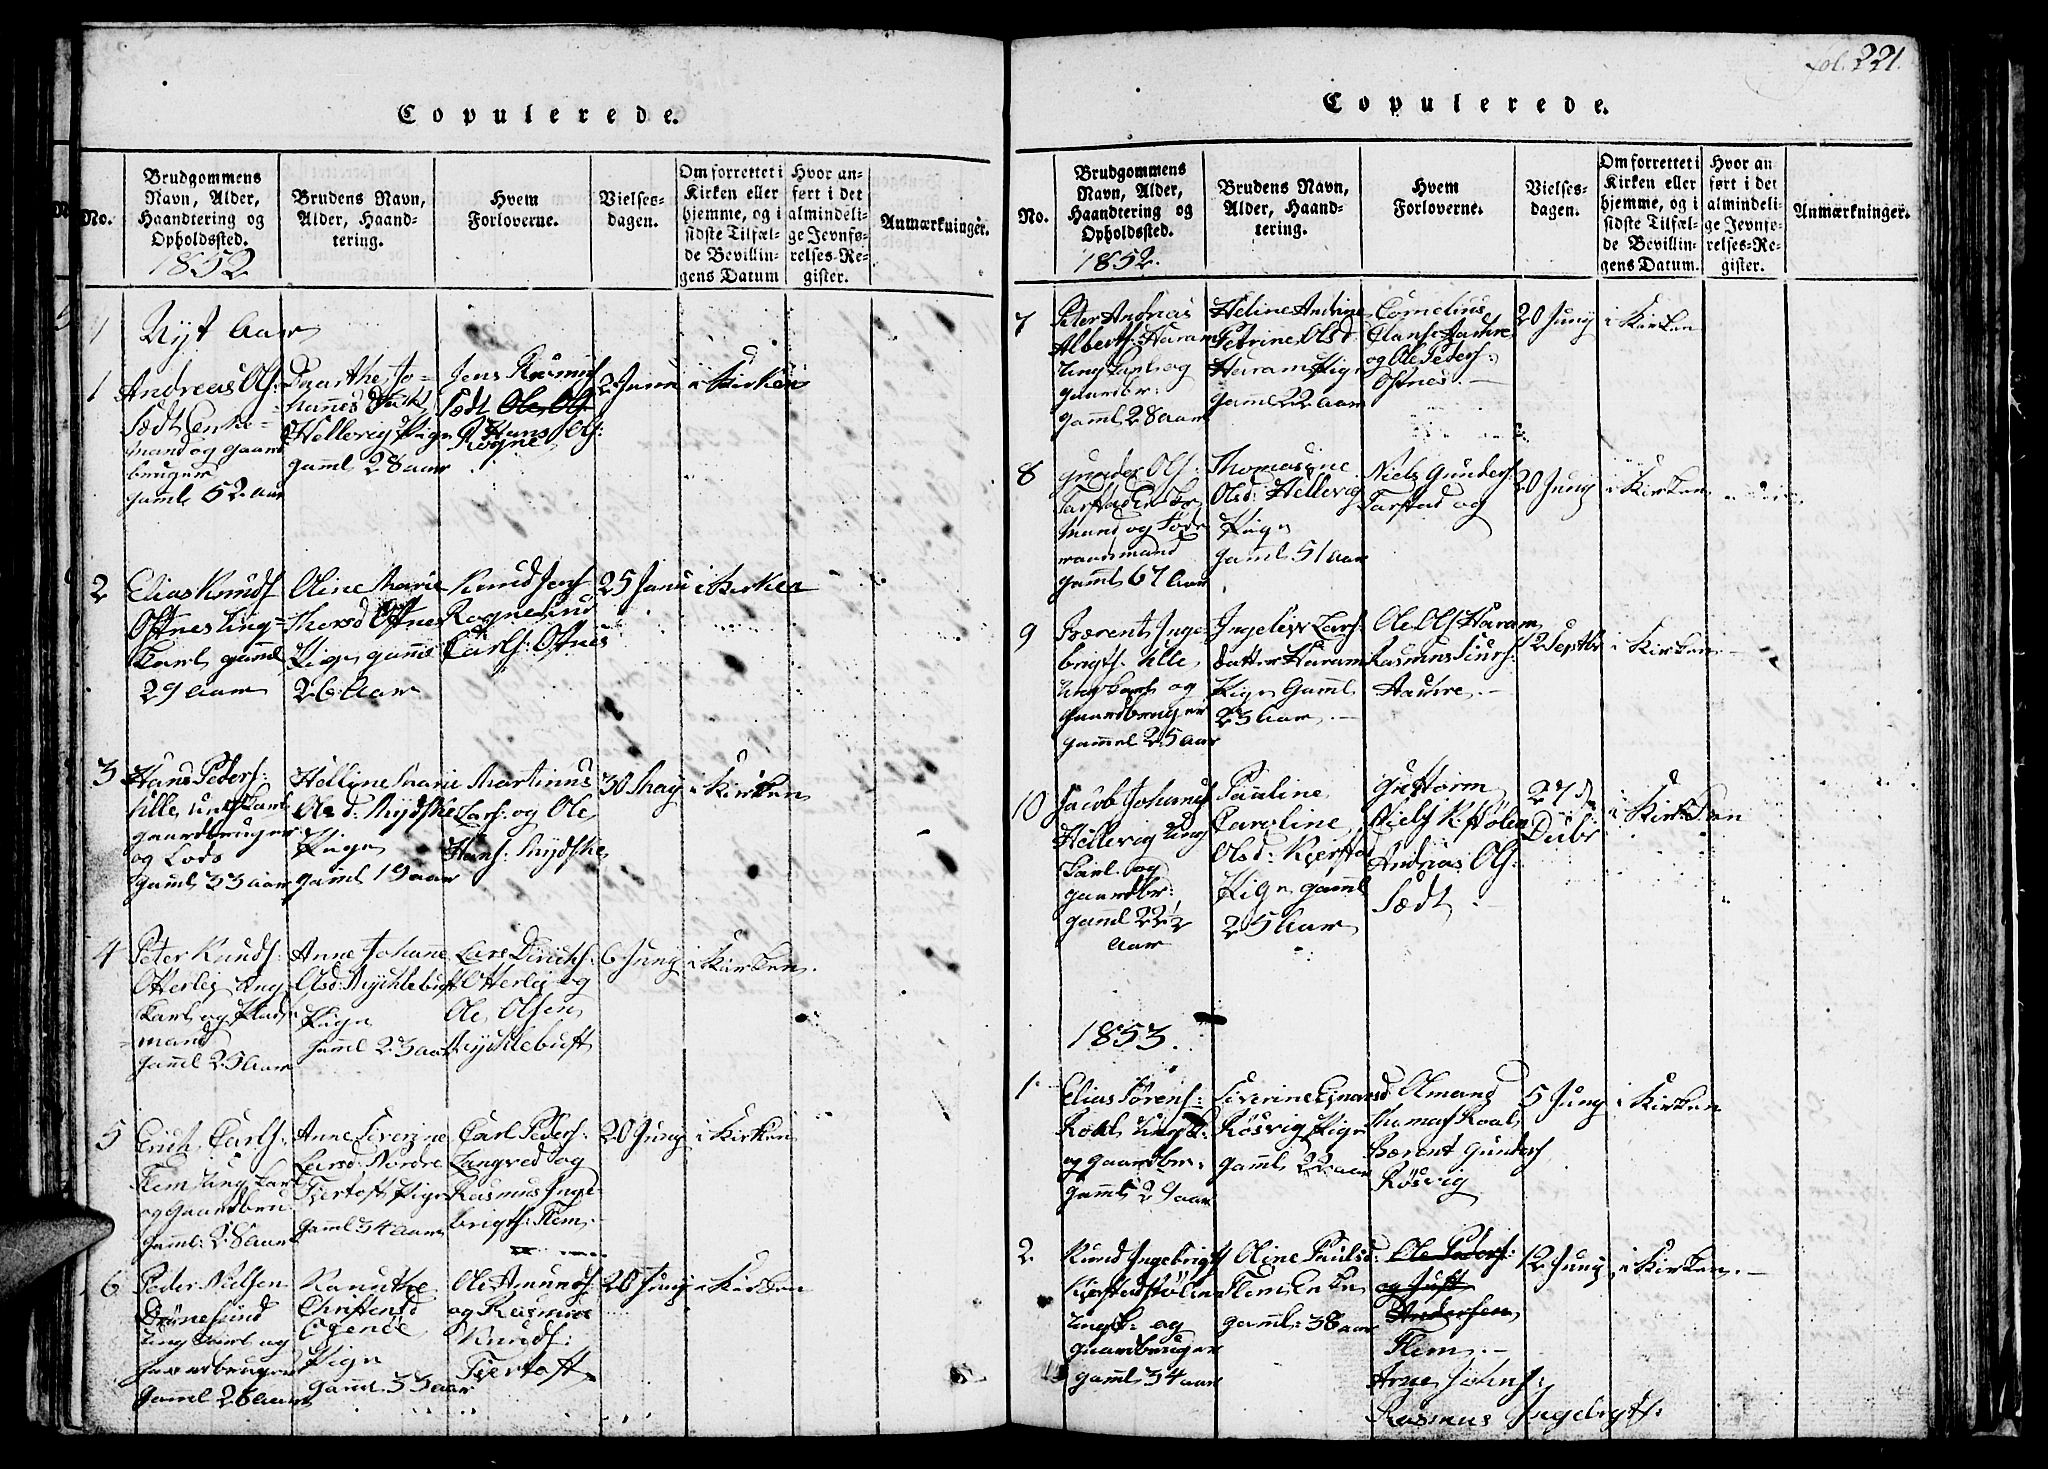 fol. 221.
Copulerede.
No.
Brudgommens
Navn, Alder,
Haandtering og
Opholdssted.
1852
Brudens Navn,
Alder, Haand-
tering.
Hvem
Forloverne.
Vielses-
dagen.
Om forrettet i
Kirken eller
hjemme, og i
sidste Tilfæl-
de Bevillin-
gens Datum
Hvor an-
ført i det
almindeli-
ge Jevnfø-
relses-Re-
gister.
Anmærkninger.
Nyt Aar
1
Andreas Ols:
Sædt Enke-
mand og gaard
bruger
gaml 52 aar
Dorthe Jo-
hannes
Hellevig Pige
gaml 28 aar
Jens Rasmus
Sædt Ole Ols
Hans Ols:
Rogne
2 Janu
i Kirken
2
Elias Knuds
Oftnes Ung-
karl gaml
29 Aar
Oline Marie
Iversd Oftnes
Pige gaml
26 Aar
Knud Jens
Rognesund
Carls: Oftnes
25 Janu
i Kirken
3
Hans Peders:
Ulle, ungkarl
gaardbruger
og Lods
gaml 33 aar
Helline Marie
Olsd: Mydske
Pige
gaml 19 aar
Martinus
Lars: og Ole
Hans: Mydske
30 May
i Kirken
4
Peter Knuds:
Otterlej Ung
karl og Plads
mand
gaml 25 Aar
Anne Johanne
Olsd: Myklebust
Pige
gaml 23 aar
Lars Dirichs:
Otterlej og
Ole Olsen
Myklebust
6 Juny
i Kirken.
5
Erich Carls:
Flem Ung karl
og Gaardbru
gaml: 28 aar
Anne Severine
Larsd: Nordre
Fjertoft Pige
gaml 34 aar
Carl Peders:
Longved og
Rasmus Inge-
brigts: Flem.
20 Juny
i Kirken
6
Peder Nielsen
Brønesund
Ung karl og
gaardbruger
gaml 26 Aar
Knudthe
Christensd
Ogende
Pige
gaml. 33 aar
Ole Amunds:
og Rasmus
Knuds:
Fjertoft.
20 Juny
i Kirken
Copulerede.
No.
Brudgommens
Navn, Alder,
Haandtering og
Opholdssted.
1852.
Brudens Navn,
Alder, Haand-
tering.
Hvem
Forloverne.
Vielses-
dagen.
Om forrettet i
Kirken eller
hjemme, og i
sidste Tilfæl-
de Bevillin-
gens Datum.
Hvor an
ført i det
almindeli-
ge Jevnfø-
relses-Re-
gister.
Anmærkninger.
7
Peter Andreas
Alberts: Haram
Ung Karl og
gaardbr:
gaml 28 aar
Heline Andrine
Petrine Olsd
Haram Pige
gaml 22 aar
Cornelius
Clans: Hadure
og Ole Peders:
Oftnes.
20 Juny
i Kirken
8
Gunder Ols:
Tarstad Enke
mand og Føde
raadsmand
gaml 67 Aar
Thomasine
Olsd: Hellevig
Pige
gaml 51 aar
Niels Gunders:
Tarstad og
20 Juny
i Kirken
9
Bærent Inge
brigts. Ulle,
Ungkarl og
gaardbruger
gammel 25 aar
Ingeleiv Lars:
datter Haram
Pige Gaml
23 Aar.
Ole Ols Haram
Rasmus Siurs:
Hadure.
12 Septbr
i Kirken.
10
Jacob Johans
Hellevig Ung
karl og
gaardbr:
gaml 22 1/2
Aar
Pauline
Caroline
Olsd: Kjerstad
Pige gaml
25 Aar
Guttorm
Niels K. Stølen
Andrias Ols:
Sædt
27 d
Debr
i Kirken
1853.
1.
Elias Sørens:
Roald Ungk:
og gaardbr:
gaml 29 aar
Siverine Ejnarsd
Røsvig Pige
gaml 22 aar
Olmand
Thomas Roal
Bærent Gunders
Røsvig
5 Juny
i Kirken
2.
Knud Ingebrigts
Kjerstadstølen
Ungk: og
gaardbruger
gaml 34 aar
Oline Paulsd:
Flem Enke
gaml: 38 aar
Ole Peders:
og Just
Andersen
Flem.
Arne Johns:
Rasmus Ingebrigts:
12 Juny
i Kirken.